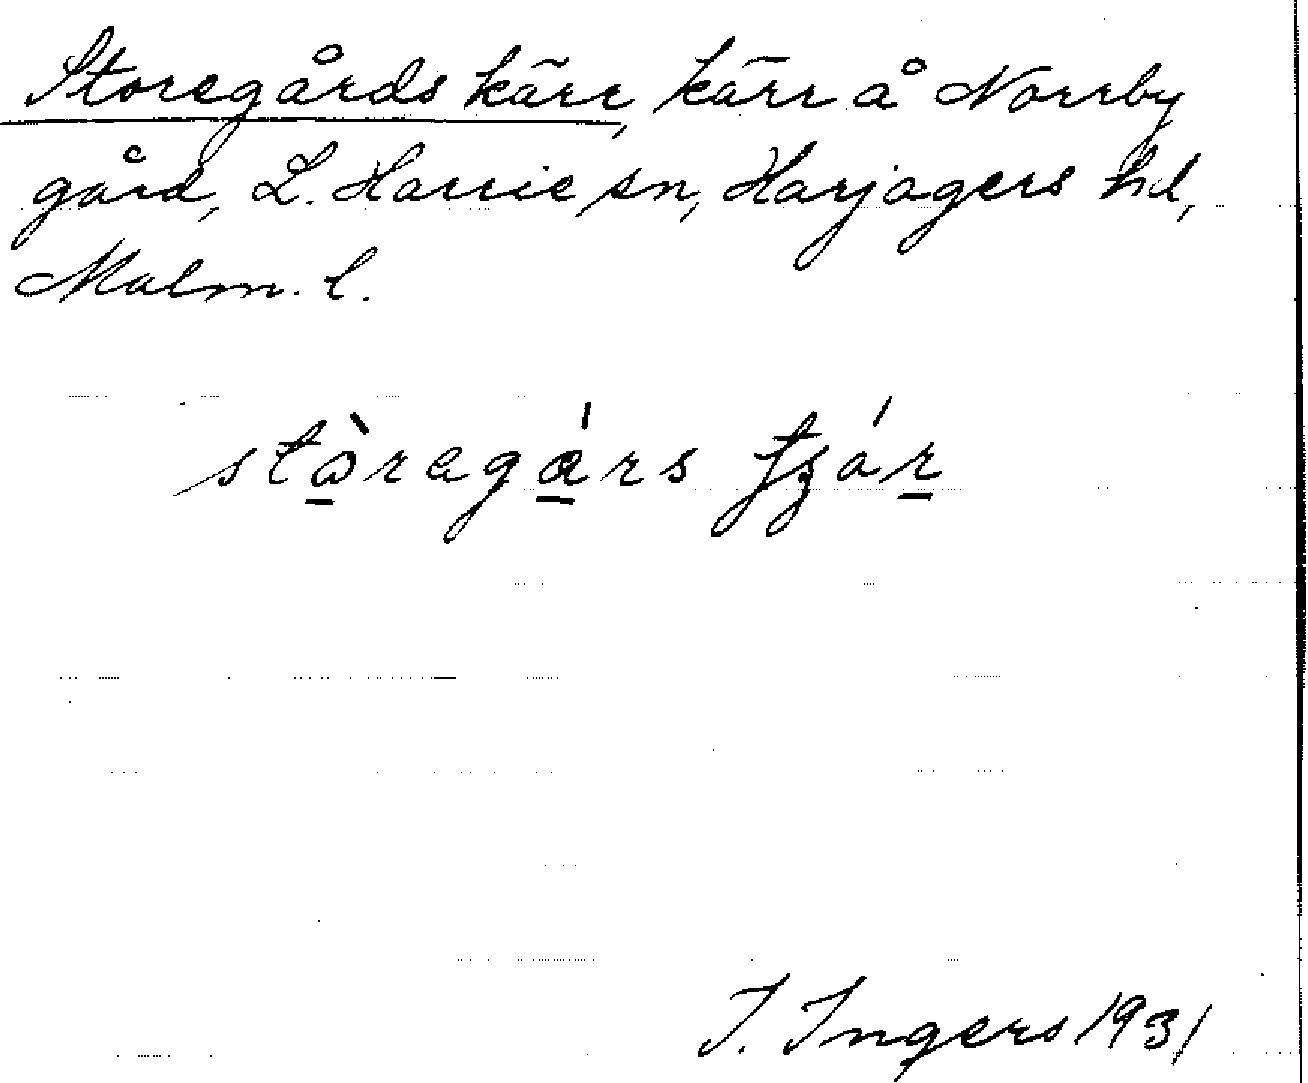 Storegårds kärr, kärr å Norrby
gård, L. Harrie sn, Harjagers hd,
Malm. l.
stò̱ragá̱rs tʂáṟ
I. Ingers 1931